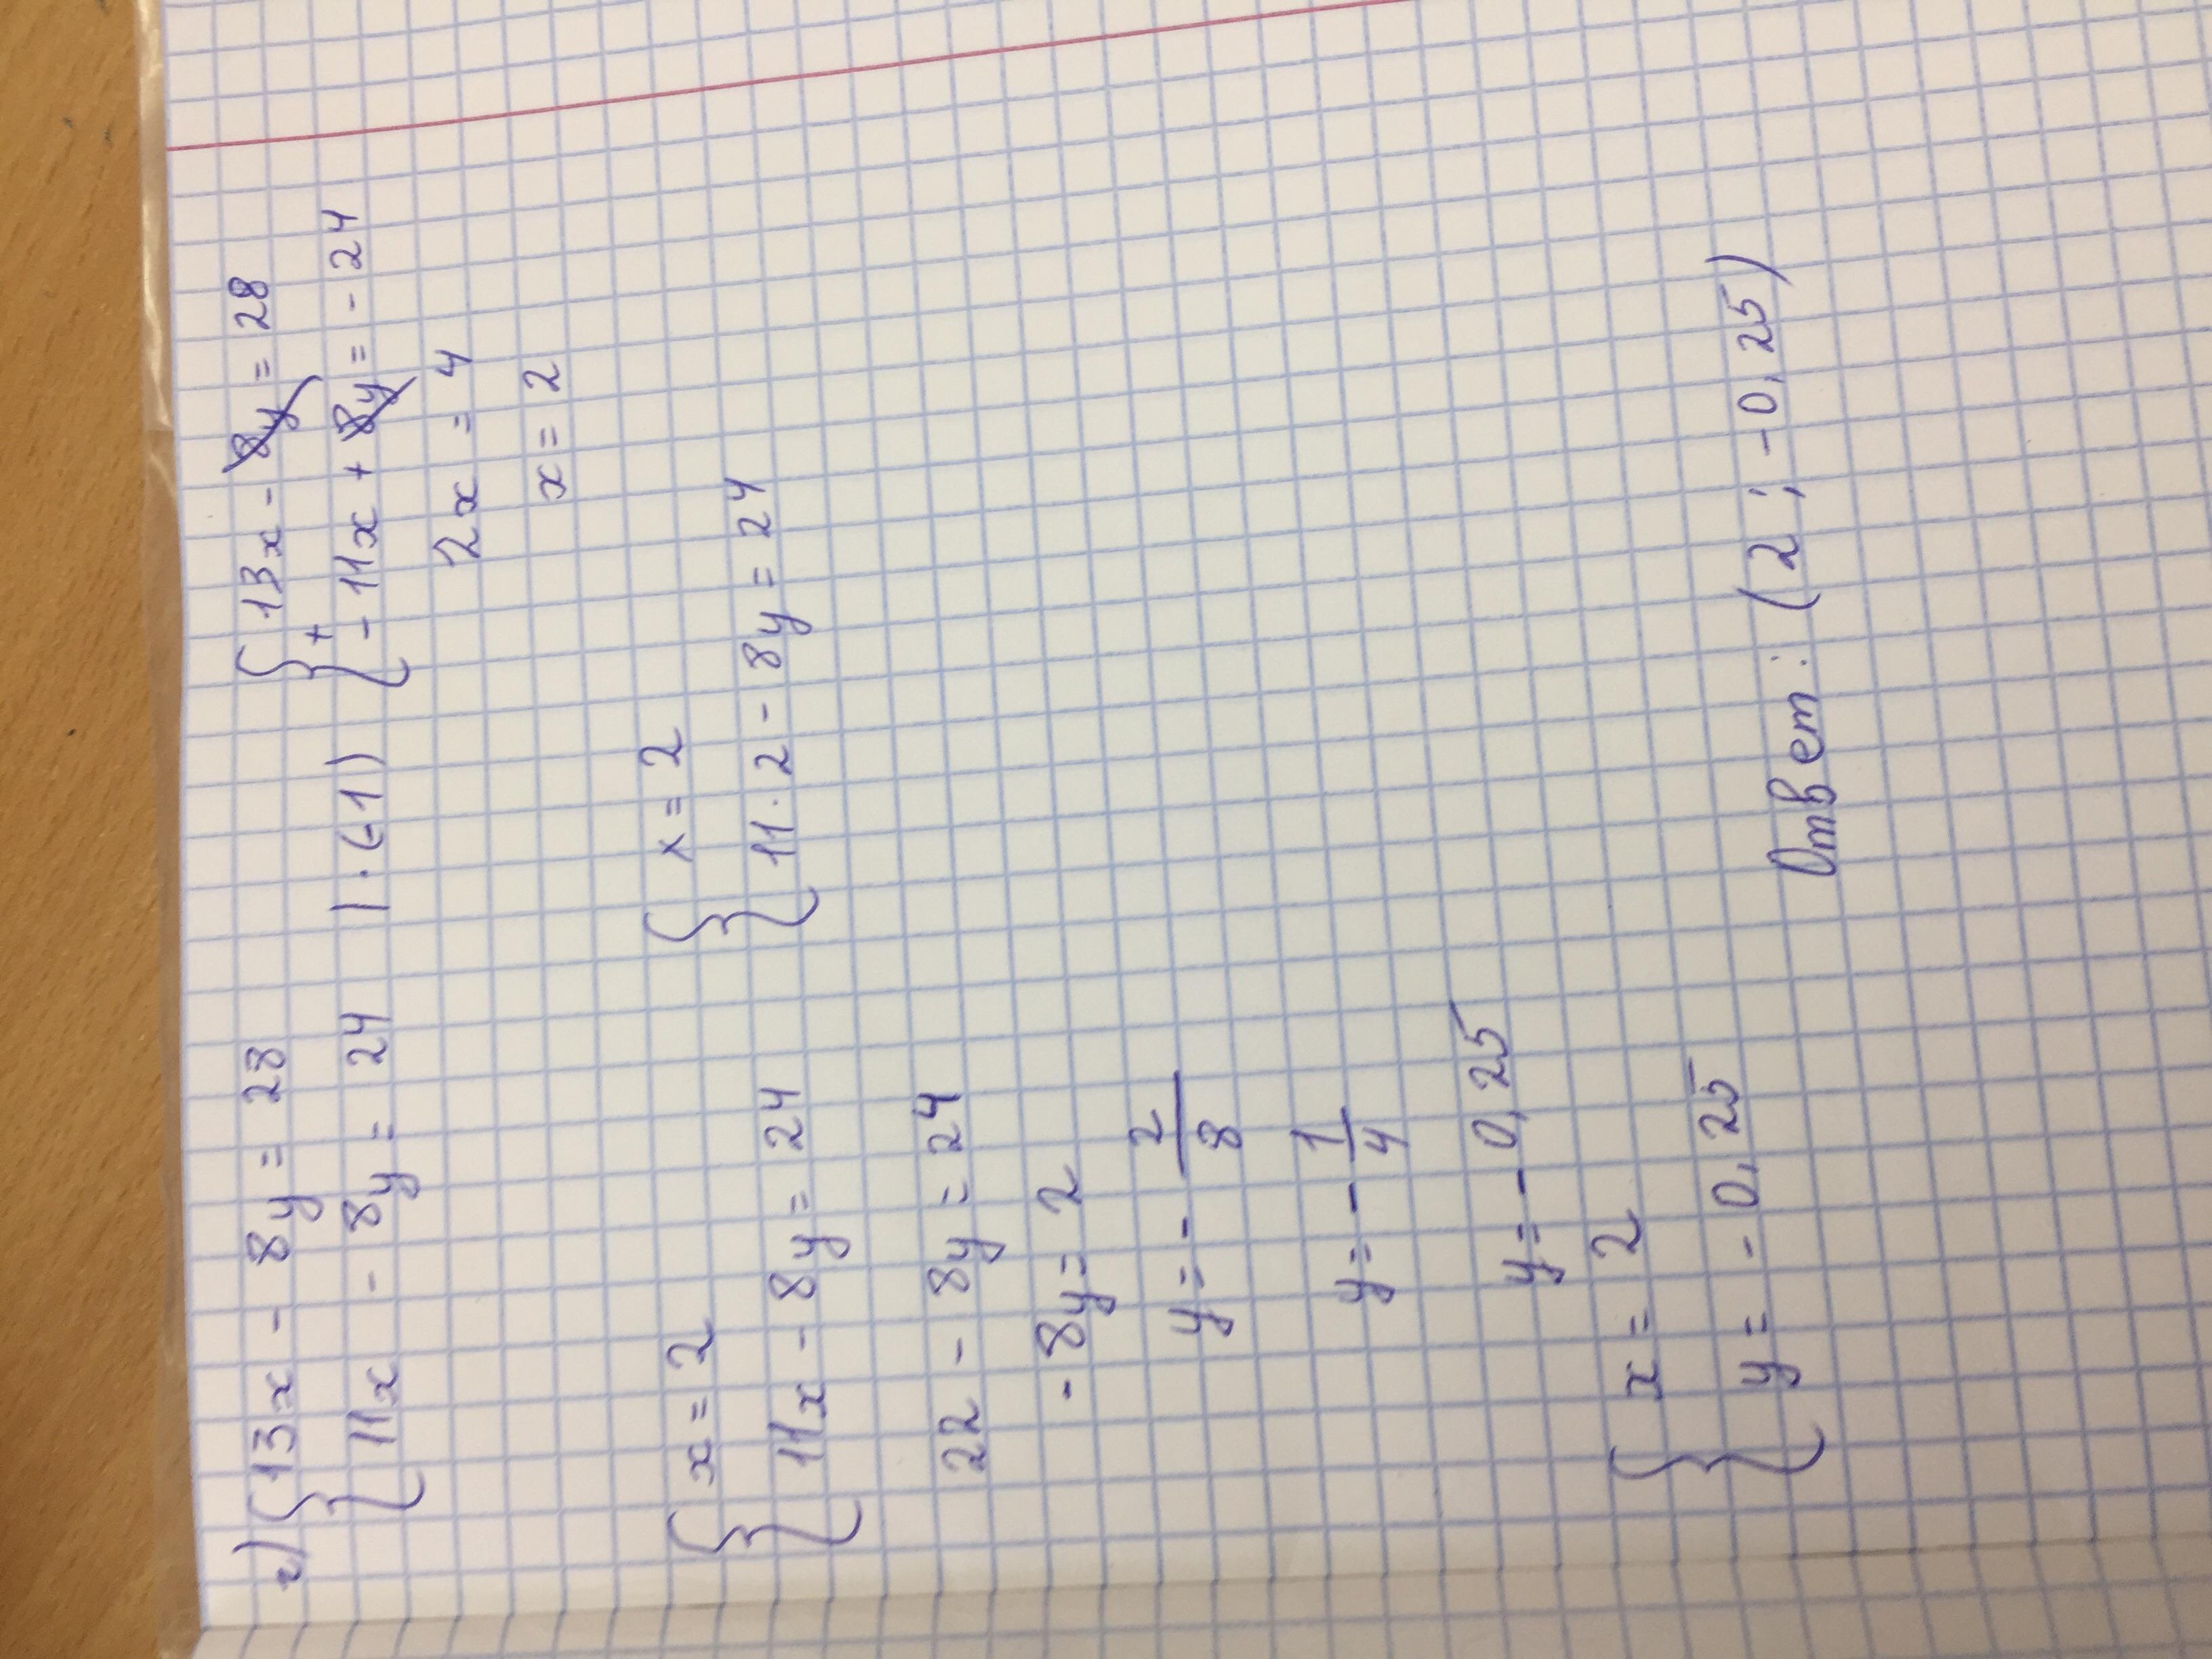 г) { 13x - 8y = 28
11x - 8y = 24 | · (-1)
{ 13x - 8y = 28
+
- 11x + 8y = - 24
2x = 4
x = 2
{ x = 2
11x - 8y = 24
{ x = 2
11 · 2 - 8y = 24
22 - 8y = 24
- 8y = 2
y = - 2/8
y = - 1/4
y = - 0,25
{ x = 2
y = - 0,25
Ответ: (2 ; -0,25)